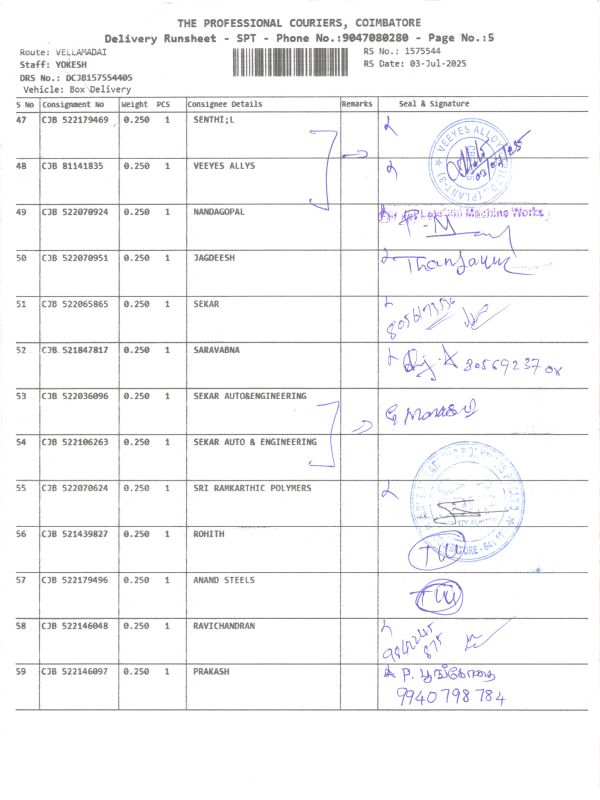 THE PROFESSIONAL COURIERS, COIMBATORE
Delivery Runsheet - SPT - Phone No.:9047080280 - Page No.:5
Route: VELLAMADAI RS No.: 1575544
Staff: YOKESH RS Date: 03-Jul-2025
DRS No.: DCJB157554405
Vehicle: Box Delivery
S No Consignment No Weight PCS Consignee Details Remarks Seal & Signature
47 CJB 522179469 0.250 1 SENTHI;L
48 CJB 81141835 0.250 1 VEEYES ALLYS
49 CJB 522070924 0.250 1 NANDAGOPAL Machine Works
50 CJB 522070951 0.250 1 JAGDEESH
51 CJB 522065865 0.250 1 SEKAR
52 CJB 521847817 0.250 1 SARAVABNA
53 CJB 522036096 0.250 1 SEKAR AUTO&ENGINEERING
54 CJB 522106263 0.250 1 SEKAR AUTO & ENGINEERING
55 CJB 522070624 0.250 1 SRI RAMKARTHIC POLYMERS
56 CJB 521439827 0.250 1 ROHITH
57 CJB 522179496 0.250 1 ANAND STEELS
58 CJB 522146048 0.250 1 RAVICHANDRAN
59 CJB 522146097 0.250 1 PRAKASH P. பூங்கோதை
9940 798 784